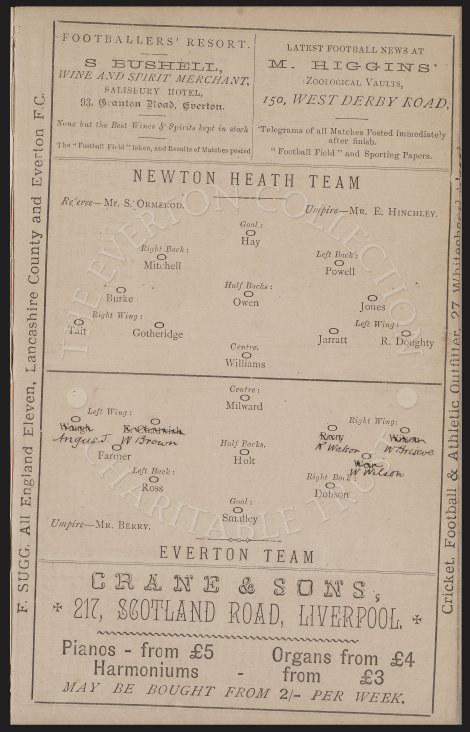 FOOTBALLERS' RESORT.
S BUSHELL,
WINE AND SPIRIT MERCHANT,
SALISBURY HOTEL,
93, Granton Road, Everton.
None but the Best Wines & Spirits kept in stock
The "Football Field" taken, and Results of Matches posted
LATEST FOOTBALL NEWS AT
M. HIGGINS'
ZOOLOGICAL VAULTS,
150, WEST DERBY ROAD.
Telegrams of all Matches Posted immediately
after finish.
"Football Field" and Sporting Papers.
NEWTON HEATH TEAM
Referee—MR. S. ORMEROD.
Umpire—MR. E. HINCHLEY.
Goal:
Hay
Right Back:
Mitchell
Left Back:
Powell
Half Backs:
Burke
Owen
Jones
Right Wing:
Tait
Gotheridge
Left Wing:
Jarratt
R. Doughty
Centre.
Williams
Centre:
Milward
Left Wing:
Waugh
Angus J.
W Brown
Right Wing:
R Watson
W Briscoe
Half Backs.
Farmer
Holt
W Wilson
Left Back:
Ross
Right Back:
Dobson
Goal:
Smalley
Umpire—MR. BERRY.
EVERTON TEAM
CRANE & SONS,
217, SCOTLAND ROAD, LIVERPOOL.
Pianos - from £5
Organs from £4
Harmoniums - from £3
MAY BE BOUGHT FROM 2/- PER WEEK.
F. SUGG, All England Eleven, Lancashire County and Everton F.C.
Cricket, Football & Athletic Outfitter, 27 Whitechapel
THE EVERTON COLLECTION
CHARITABLE TRUST